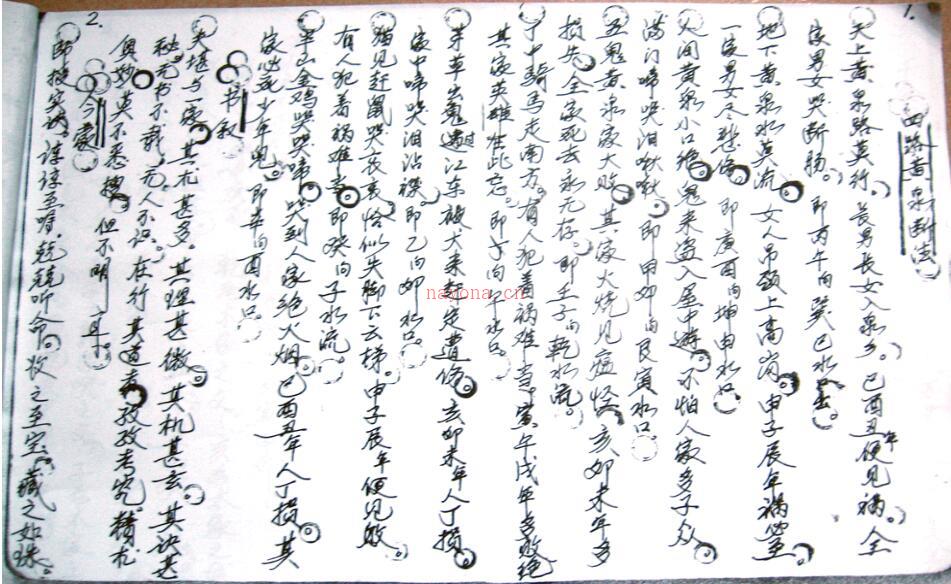 1.
四路黄泉断法
天上黄泉路莫行。长男长女入泉乡。巳酉丑年便见祸。全
家男女哭断肠。即丙午向巽巳水去。
地下黄泉水莫流 女人吊颈上高岗。申子辰年祸必至
一家男女尽悲伤 即庚酉向坤申水口。
人间黄泉小口绝 鬼来盗入屋中游。不怕人家多子众
满门啼哭泪啾啾 即甲卯向艮寅水口
五鬼黄泉家大败 其家火烧见瘟怪 亥卯未年多
损失 全家死去永无存。即壬子向乾水流。
丁中骑马走南方。有人犯着祸难当。寅午戌年多败绝
其家英雄在此忘。即丁向午水口。
茅草出鬼过江东 被犬来赶定遭伤。亥卯未年人丁损
家中啼哭泪沾襟 即乙向卯水口。
猫见赶鼠哭哀哀 恰似失脚下云梯。申子辰年便见败
有人犯着祸难当 即癸向子水流。
半山金鸡哭哭啼 哭到人家绝火烟 巳酉丑年人丁损 其
家必死少年鬼。即辛向酉水口
书叙
2.
夫堪与一家 其术甚多。其理甚微 其机甚玄 其诀甚
秘。无书不载。无人不识。在行其道者孜孜考究。精术
奥妙莫不悉搜。但不明
今蒙
即授实诀。谆谆至嘱。兢兢听命。收之至宝。藏之如珠。
nayona.cn